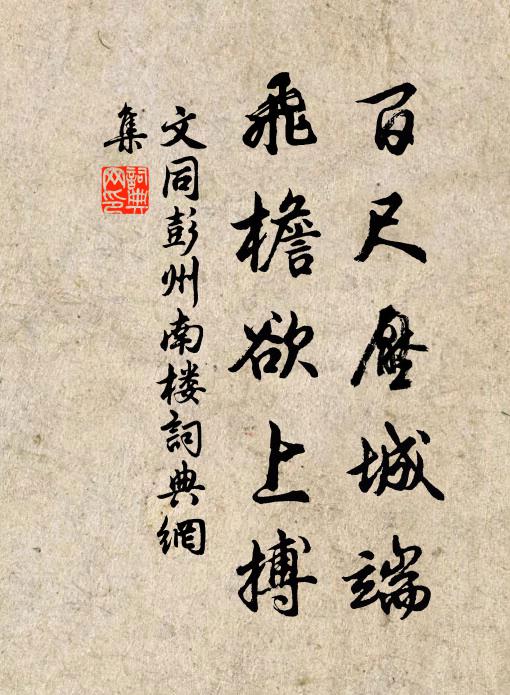 百尺壓城端
飛檐欲上搏
文同彭州南楼詞典網
集
詞典
网印